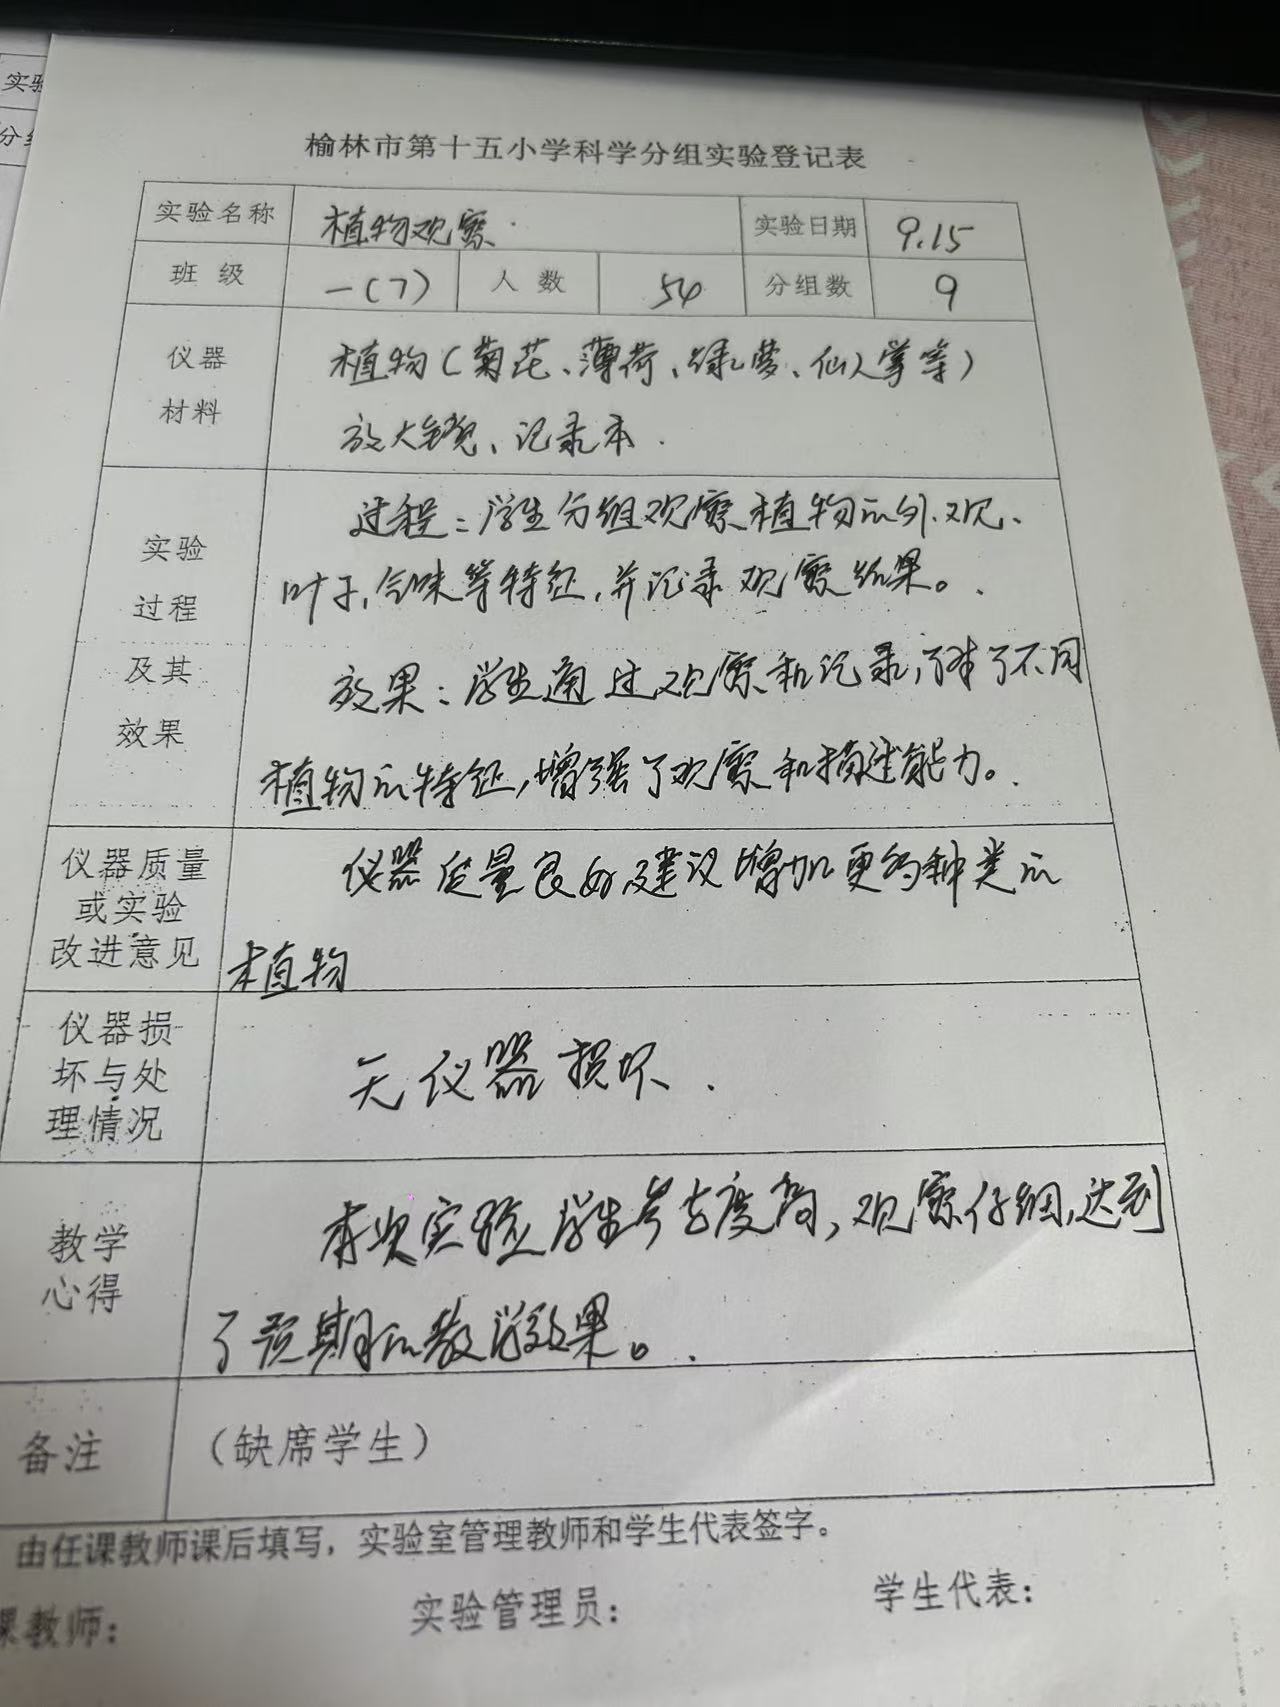 实验
分组
榆林市第十五小学科学分组实验登记表
实验名称 植物观察. 实验日期 9.15
班 级 一(7) 人 数 54 分组数 9
仪器 植物(菊花、薄荷、绿萝、仙人掌等)
材料 放大镜、记录本.
过程:学生分组观察植物的外观、
实验 叶子,气味等特征,并记录观察结果。
过程
及其 效果:学生通过观察和记录,了解了不同
效果 植物的特征,增强了观察和描述能力。
仪器质量 仪器质量良好,建议增加更多种类的
或实验
改进意见 植物
仪器损
坏与处 无仪器损坏.
理情况
教学 本次实验,学生参与度高,观察仔细,达到
心得 了预期的教学效果。
备注 (缺席学生)
由任课教师课后填写,实验室管理教师和学生代表签字。
课教师: 实验管理员: 学生代表: